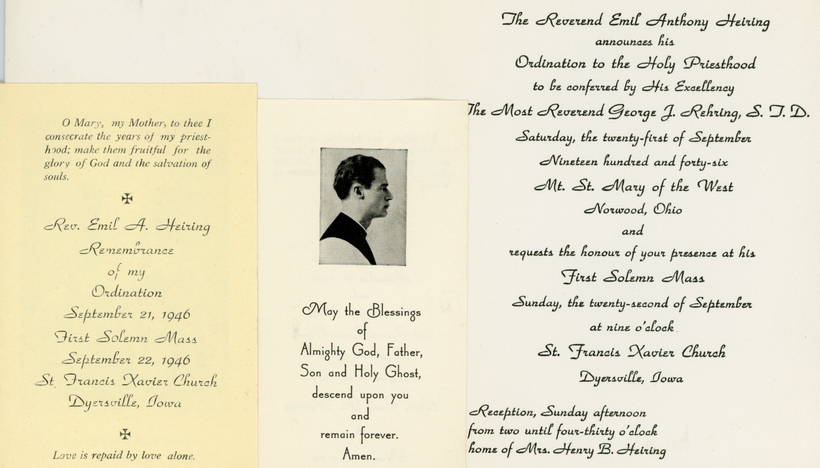 O Mary, my Mother, to thee I
consecrate the years of my priest-
hood; make them fruitful for the
glory of God and the salvation of
souls.
Rev. Emil A. Heiring
Remembrance
of my
Ordination
September 21, 1946
First Solemn Mass
September 22, 1946
St. Francis Xavier Church
Dyersville, Iowa
Love is repaid by love alone.
May the Blessings
of
Almighty God, Father,
Son and Holy Ghost,
descend upon you
and
remain forever.
Amen.
The Reverend Emil Anthony Heiring
announces his
Ordination to the Holy Priesthood
to be conferred by His Excellency
The Most Reverend George J. Rehring, S. T. D.
Saturday, the twenty-first of September
Nineteen hundred and forty-six
Mt. St. Mary of the West
Norwood, Ohio
and
requests the honour of your presence at his
First Solemn Mass
Sunday, the twenty-second of September
at nine o'clock
St. Francis Xavier Church
Dyersville, Iowa
Reception, Sunday afternoon
from two until four-thirty o'clock
home of Mrs. Henry B. Heiring